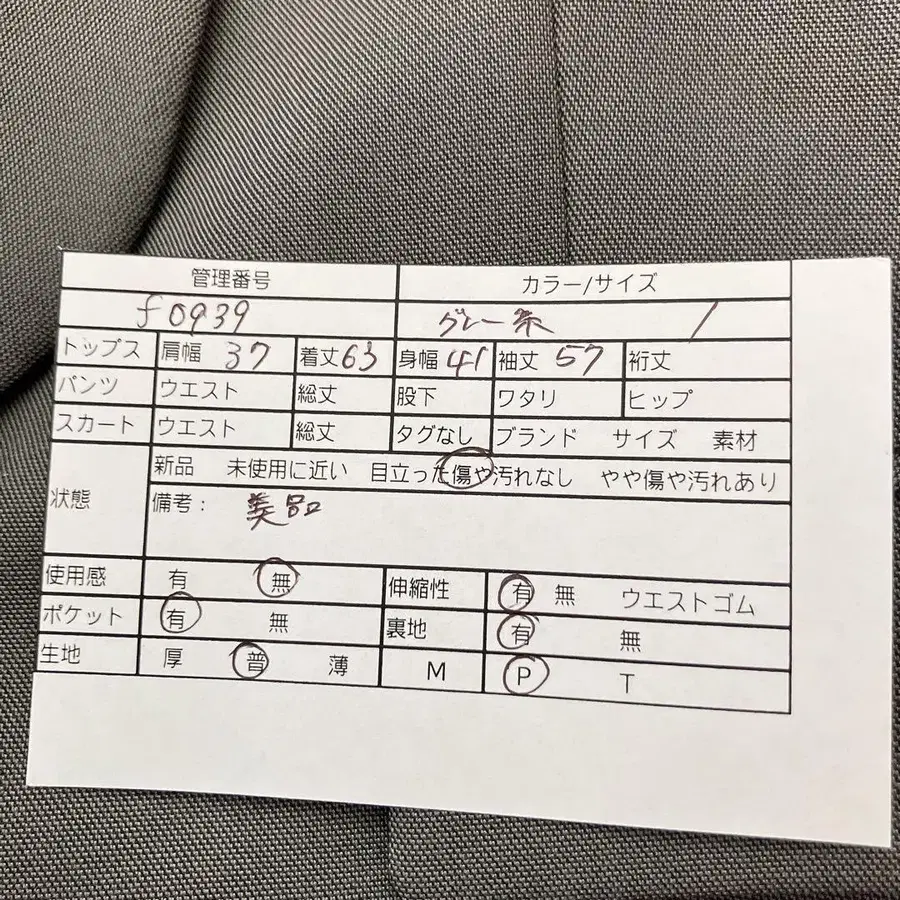 管理番号 カラー/サイズ
f0939 グレー系 /
トップス 肩幅 37 着丈 63 身幅 41 袖丈 57 裄丈
パンツ ウエスト 総丈 股下 ワタリ ヒップ
スカート ウエスト 総丈 タグなし ブランド サイズ 素材
状態 新品 未使用に近い 目立った傷や汚れなし やや傷や汚れあり
備考： 美品
使用感 有 無 伸縮性 有 無 ウエストゴム
ポケット 有 無 裏地 有 無
生地 厚 普 薄 M P T